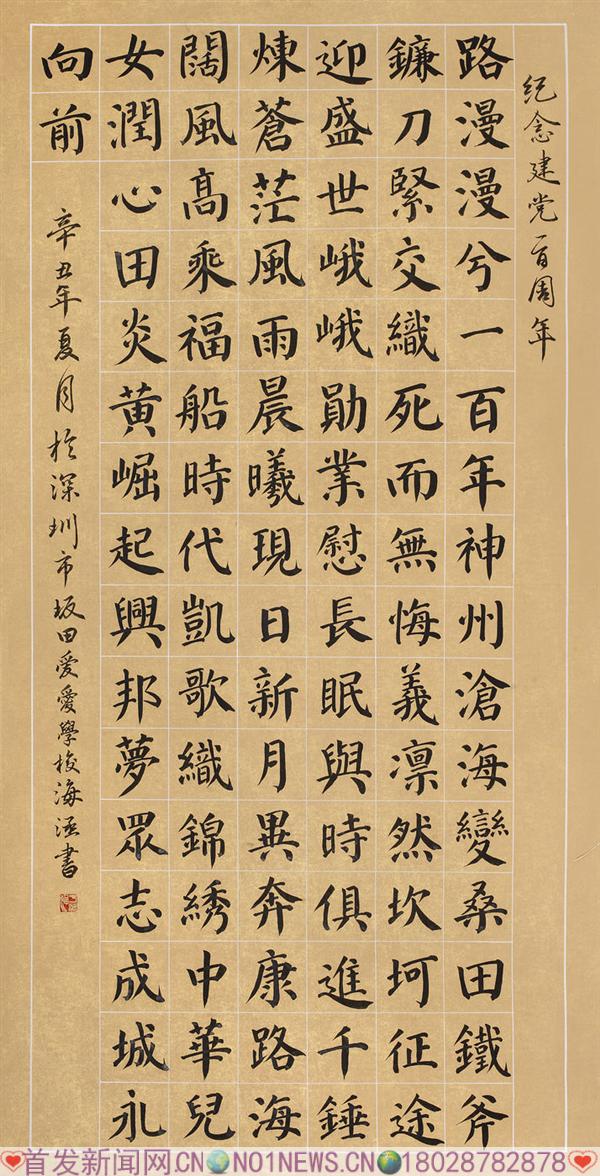 纪念建党一百周年
路漫漫兮一百年神州滄海變桑田鐵斧
鐮刀緊交織死而無悔義凛然坎坷征途
迎盛世峨峨勛業慰長眠與時俱進千錘
煉蒼茫風雨晨曦現日新月異奔康路海
闊風髙乘福船時代凱歌織錦綉中華兒
女潤心田炎黄崛起興邦夢眾志成城永
向前
辛丑年夏月於深圳市坂田爱愛學校海涵書
首发新闻网.CN NO1NEWS.CN 18028782878